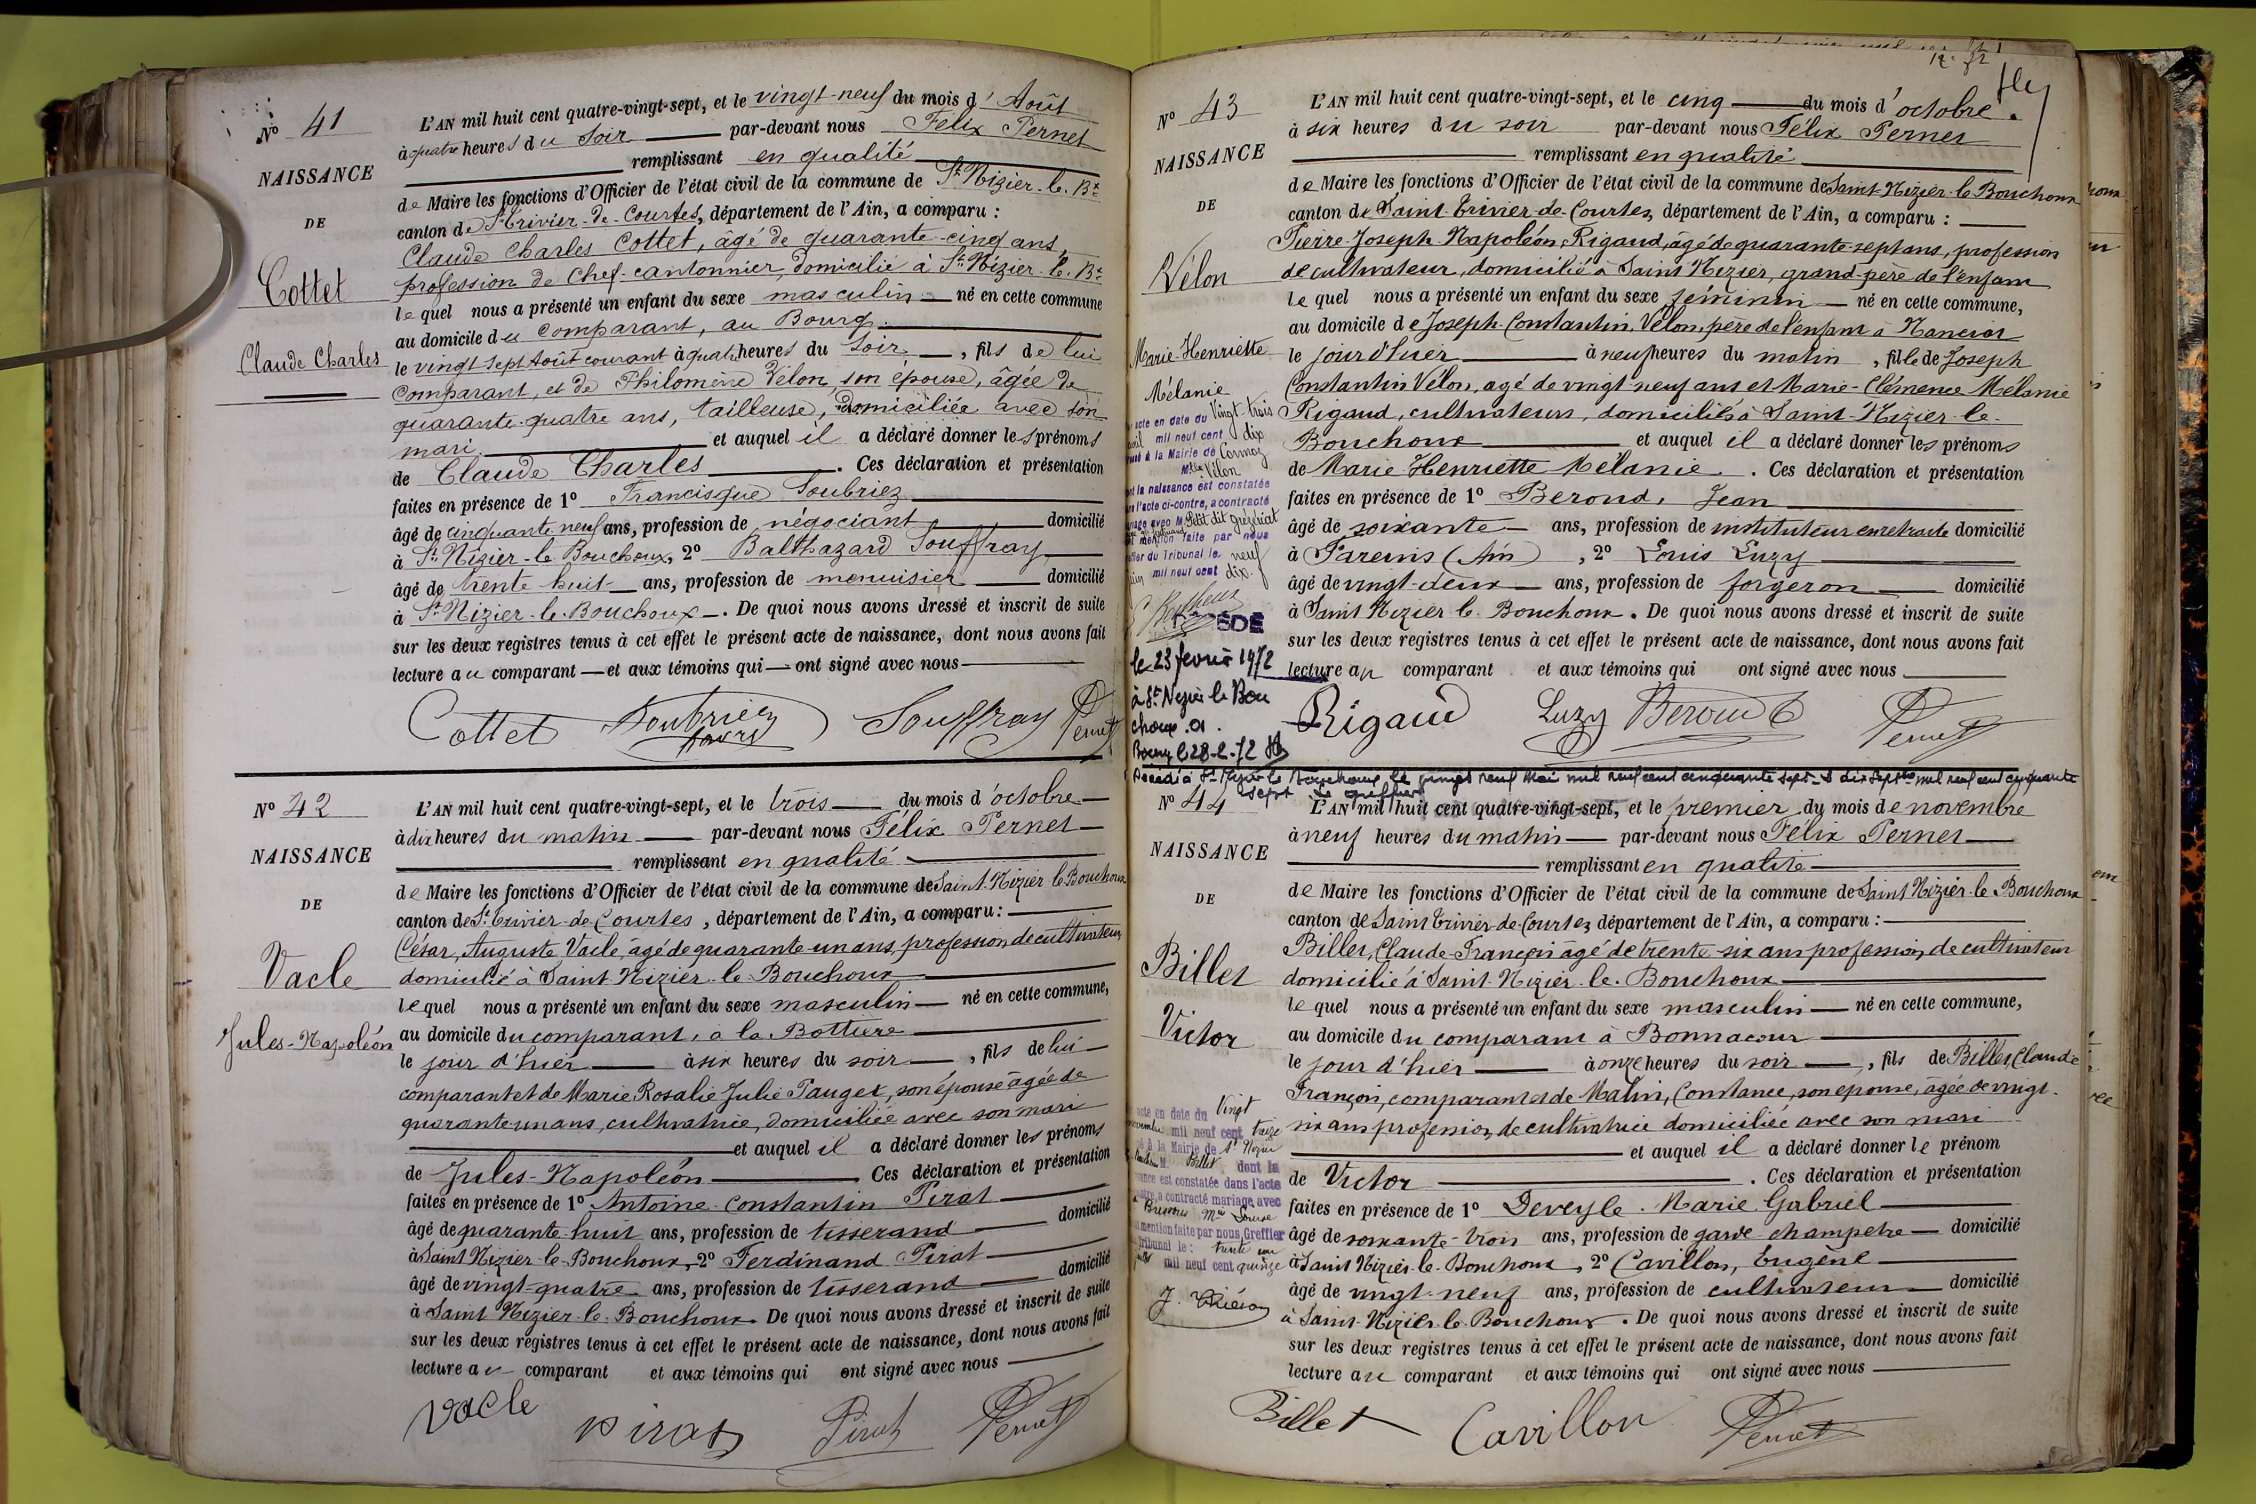 N° 41
NAISSANCE
DE
Cottet
Claude Charles
L'AN mil huit cent quatre-vingt-sept, et le vingt-neuf du mois d'Août
à quatre heures du soir par-devant nous Félix Pernet
remplissant en qualité
de Maire les fonctions d'Officier de l'état civil de la commune de St Nizier-le-Bx
canton de St Trivier-de-Courtes, département de l'Ain, a comparu :
Claude Charles Cottet, âgé de quarante-cinq ans,
profession de chef-cantonnier, domicilié à St Nizier-le-Bx
lequel nous a présenté un enfant du sexe masculin né en cette commune
au domicile du comparant, au Bourg
le vingt sept août courant à quatre heures du soir, fils de lui
comparant, et de Philomène Vélon, son épouse, âgée de
quarante-quatre ans, tailleuse, domiciliée avec son
mari et auquel il a déclaré donner les prénoms
de Claude Charles. Ces déclaration et présentation
faites en présence de 1° Francisque Soubriez
âgé de cinquante neuf ans, profession de négociant domicilié
à St Nizier-le-Bouchoux, 2° Balthazard Souffray
âgé de trente huit ans, profession de menuisier domicilié
à St Nizier-le-Bouchoux. De quoi nous avons dressé et inscrit de suite
sur les deux registres tenus à cet effet le présent acte de naissance, dont nous avons fait
lecture au comparant et aux témoins qui ont signé avec nous
Cottet Soubriez Souffray Pernet
N° 42
NAISSANCE
DE
Vacle
Jules-Napoléon
L'AN mil huit cent quatre-vingt-sept, et le trois du mois d'octobre
à dix heures du matin par-devant nous Félix Pernet
remplissant en qualité
de Maire les fonctions d'Officier de l'état civil de la commune de Saint-Nizier le Bouchoux
canton de St Trivier-de-Courtes, département de l'Ain, a comparu :
César, Auguste, Vacle, âgé de quarante-un ans, profession de cultivateur
domicilié à Saint-Nizier-le-Bouchoux
lequel nous a présenté un enfant du sexe masculin né en cette commune,
au domicile du comparant, à la Bottière
le jour d'hier à six heures du soir, fils de lui
comparant et de Marie Rosalie Julie Pauget, son épouse âgée de
quarante un ans, cultivatrice, domiciliée avec son mari
et auquel il a déclaré donner les prénoms
de Jules-Napoléon Ces déclaration et présentation
faites en présence de 1° Antoine Constantin Pirat
âgé de quarante-huit ans, profession de tisserand domicilié
à Saint Nizier-le-Bouchoux, 2° Ferdinand Pirat
âgé de vingt-quatre ans, profession de tisserand domicilié
à Saint Nizier-le-Bouchoux. De quoi nous avons dressé et inscrit de suite
sur les deux registres tenus à cet effet le présent acte de naissance, dont nous avons fait
lecture au comparant et aux témoins qui ont signé avec nous
Vacle Pirat Pirat Pernet
N° 43
NAISSANCE
DE
Vélon
Marie-Henriette
Mélanie
acte en date du vingt-trois
mil neuf cent dix
à la Mairie de Cormoz
Mlle Vélon
la naissance est constatée
l'acte ci-contre, a contracté
avec M. Petit dit Grézériat
mention faite par nous
du Tribunal le neuf
mil neuf cent dix.
le 23 fevrier 1972
à St Nizier le Bou
choux. 01.
Bourg le 28-2-72
L'AN mil huit cent quatre-vingt-sept, et le cinq du mois d'octobre.
à six heures du soir par-devant nous Félix Pernet
remplissant en qualité
de Maire les fonctions d'Officier de l'état civil de la commune de Saint-Nizier-le Bouchoux
canton de Saint-Trivier-de-Courtes, département de l'Ain, a comparu :
Pierre-Joseph-Napoléon, Rigaud, âgé de quarante-sept ans, profession
de cultivateur, domicilié à Saint Nizier, grand-père de l'enfant
lequel nous a présenté un enfant du sexe féminin né en cette commune,
au domicile de Joseph-Constantin, Vélon, père de l'enfant à
le jour d'hier à neuf heures du matin, fille de Joseph
Constantin Vélon, agé de vingt neuf ans et Marie-Clémence Mélanie
Rigaud, cultivateurs, domiciliés à Saint-Nizier-le-
Bouchoux et auquel il a déclaré donner les prénoms
de Marie Henriette Mélanie. Ces déclaration et présentation
faites en présence de 1° Beroud, Jean
âgé de soixante ans, profession de instituteur en retraite domicilié
à Fareins (Ain), 2° Louis Luzy
âgé de vingt-deux ans, profession de forgeron domicilié
à Saint Nizier le Bouchoux. De quoi nous avons dressé et inscrit de suite
sur les deux registres tenus à cet effet le présent acte de naissance, dont nous avons fait
lecture au comparant et aux témoins qui ont signé avec nous
Rigaud Luzy Beroud Pernet
Décédé à St Nizier le Bouchoux le vingt neuf Mai mil neuf cent cinquante sept. dix sept mil neuf cent cinquante
sept Le greffier
N° 44
NAISSANCE
DE
Billet
Victor
acte en date du vingt
novembre mil neuf cent treize
à la Mairie de St Nizier
Bouchoux M. Billet dont la
est constatée dans l'acte
a contracté mariage avec
Mlle Louise
mention faite par nous Greffier
tribunal le: trente un
mil neuf cent quinze
L'AN mil huit cent quatre-vingt-sept, et le premier du mois de novembre
à neuf heures du matin par-devant nous Félix Pernet
remplissant en qualité
de Maire les fonctions d'Officier de l'état civil de la commune de Saint Nizier-le Bouchoux
canton de Saint Trivier-de-Courtes, département de l'Ain, a comparu :
Billet, Claude-François âgé de trente-six ans profession de cultivateur
domicilié à Saint-Nizier-le-Bouchoux
lequel nous a présenté un enfant du sexe masculin né en cette commune,
au domicile du comparant à Bonnacour
le jour d'hier à onze heures du soir, fils de Billet, Claude
François, comparant et de Malin, Constance, son épouse, âgée de vingt-
six ans profession de cultivatrice domiciliée avec son mari
et auquel il a déclaré donner le prénom
de Victor. Ces déclaration et présentation
faites en présence de 1° Deveyle Marie Gabriel
âgé de soixante-trois ans, profession de garde champetre domicilié
à Saint Nizier-le-Bouchoux, 2° Cavillon, Eugène
âgé de vingt-neuf ans, profession de cultivateur domicilié
à Saint-Nizier-le-Bouchoux. De quoi nous avons dressé et inscrit de suite
sur les deux registres tenus à cet effet le présent acte de naissance, dont nous avons fait
lecture au comparant et aux témoins qui ont signé avec nous
Billet Cavillon Pernet